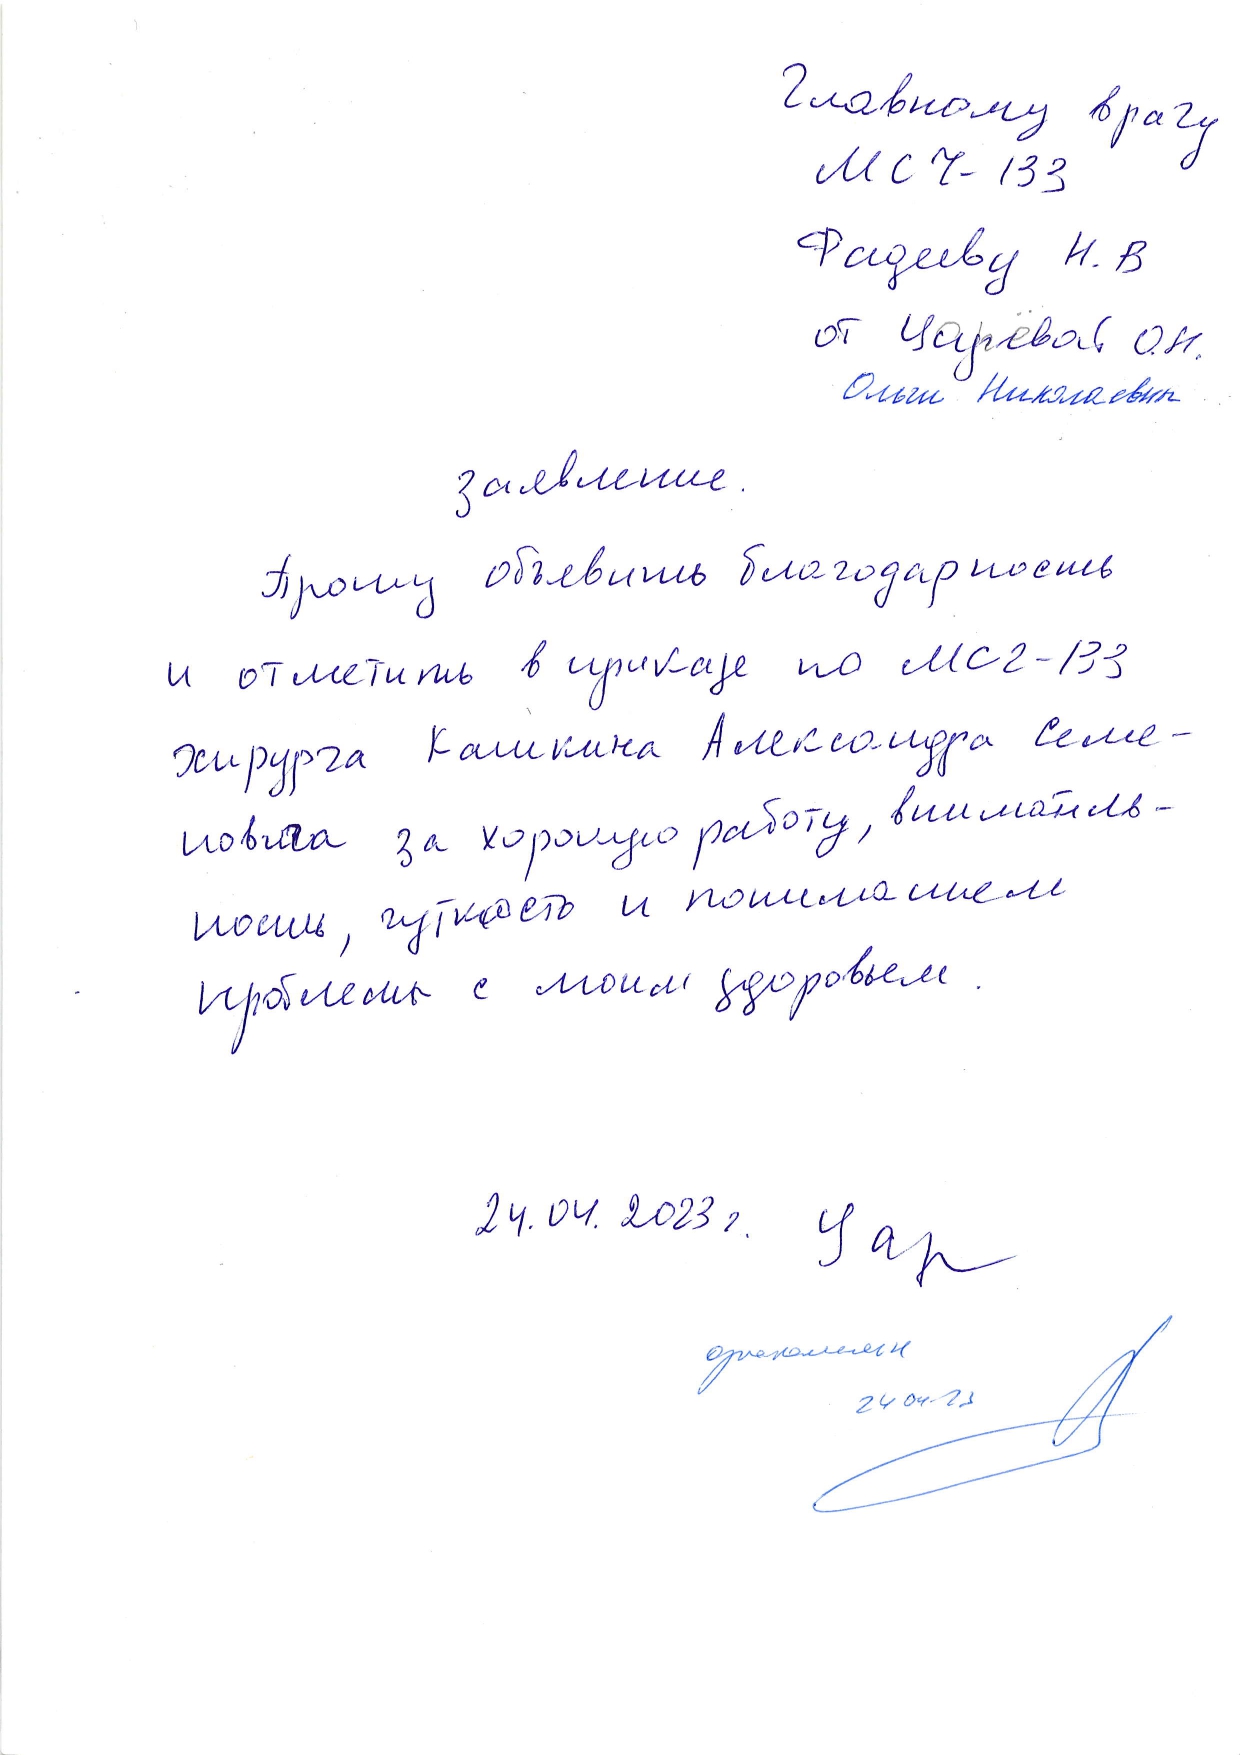 Главному врачу
МСЧ-133
Фадееву Н.В
от Царёвой О.Н.
Ольги Николаевны
Заявление.
Прошу объявить благодарность
и отметить в приказе по МСЧ-133
хирурга Кашкина Александра Семе-
новича за хорошую работу, внематель-
ность, чуткость и пониманием
проблемы с моим здоровьем.
24.04.2023г. Цар
ознакомлен
24 04 23